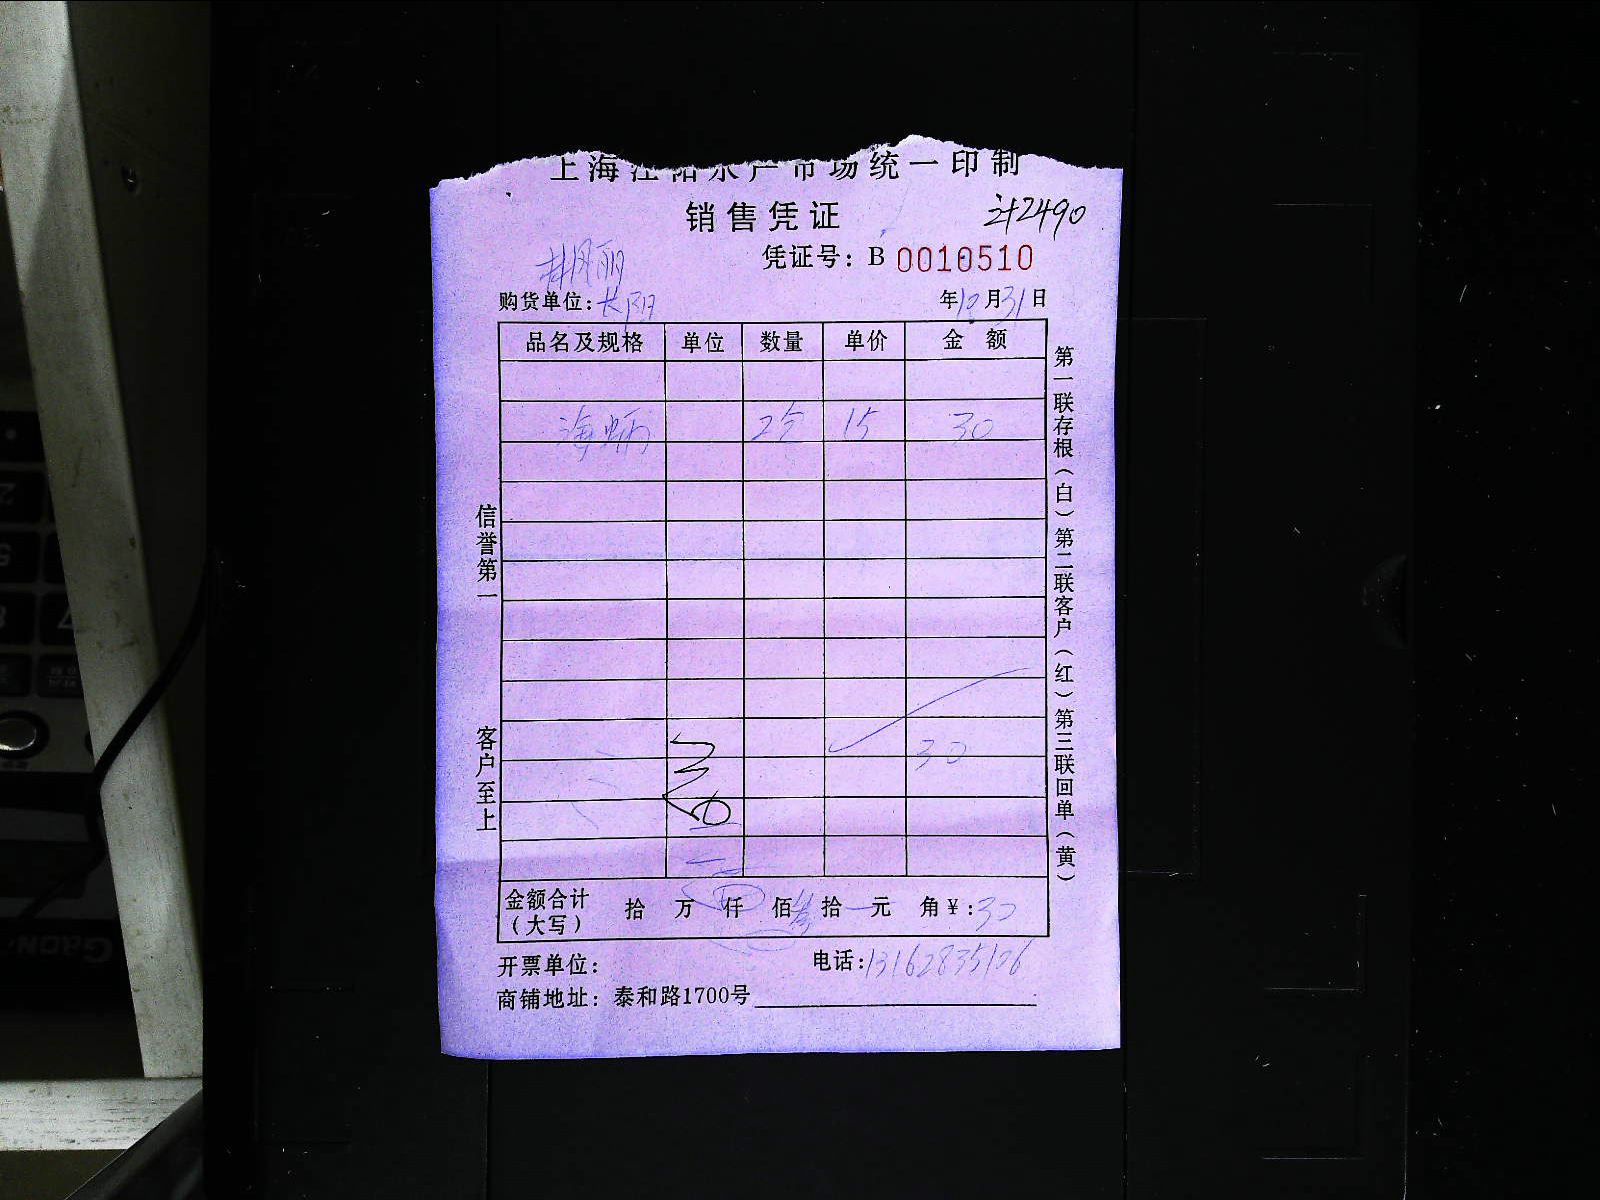 上海江阳水产市场统一印制
销售凭证
计2490
凭证号：B 0010510
购货单位：长阳
年12月31日
品名及规格 单位 数量 单价 金 额
15 30
30
金额合计（大写） 拾 万 仟 佰 拾 元 角¥：30
开票单位：
电话：13162835106
商铺地址：泰和路1700号
信誉第一 客户至上
第一联存根（白）第二联客户（红）第三联回单（黄）